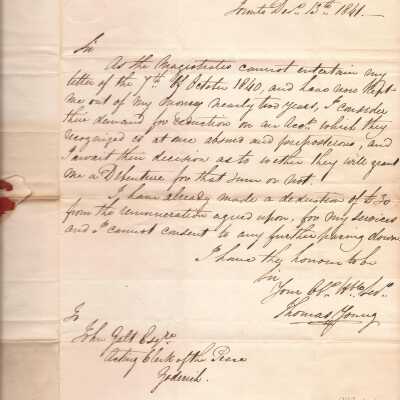 Toronto Decr. 13th. 1841.—
Sir
As the Magistrates cannot entertain my
letter of the 7th. of October 1840, and have now kept
me out of my money nearly two years, I consider
their demand for deduction on an Acct. which they
recognized as at once absurd and preposterous, and
I await their decision as to wether they will grant
me a Debenture for that sum or not.
I have already made a deduction of £30
from the remuneration agreed upon, for my services
and I cannot consent to any further paring down
I have the honour to be
Sir
Your Obt. Hble Servt.
Thomas Young
To
John Galt Esqre
Acting Clerk of the Peace
Goderich.